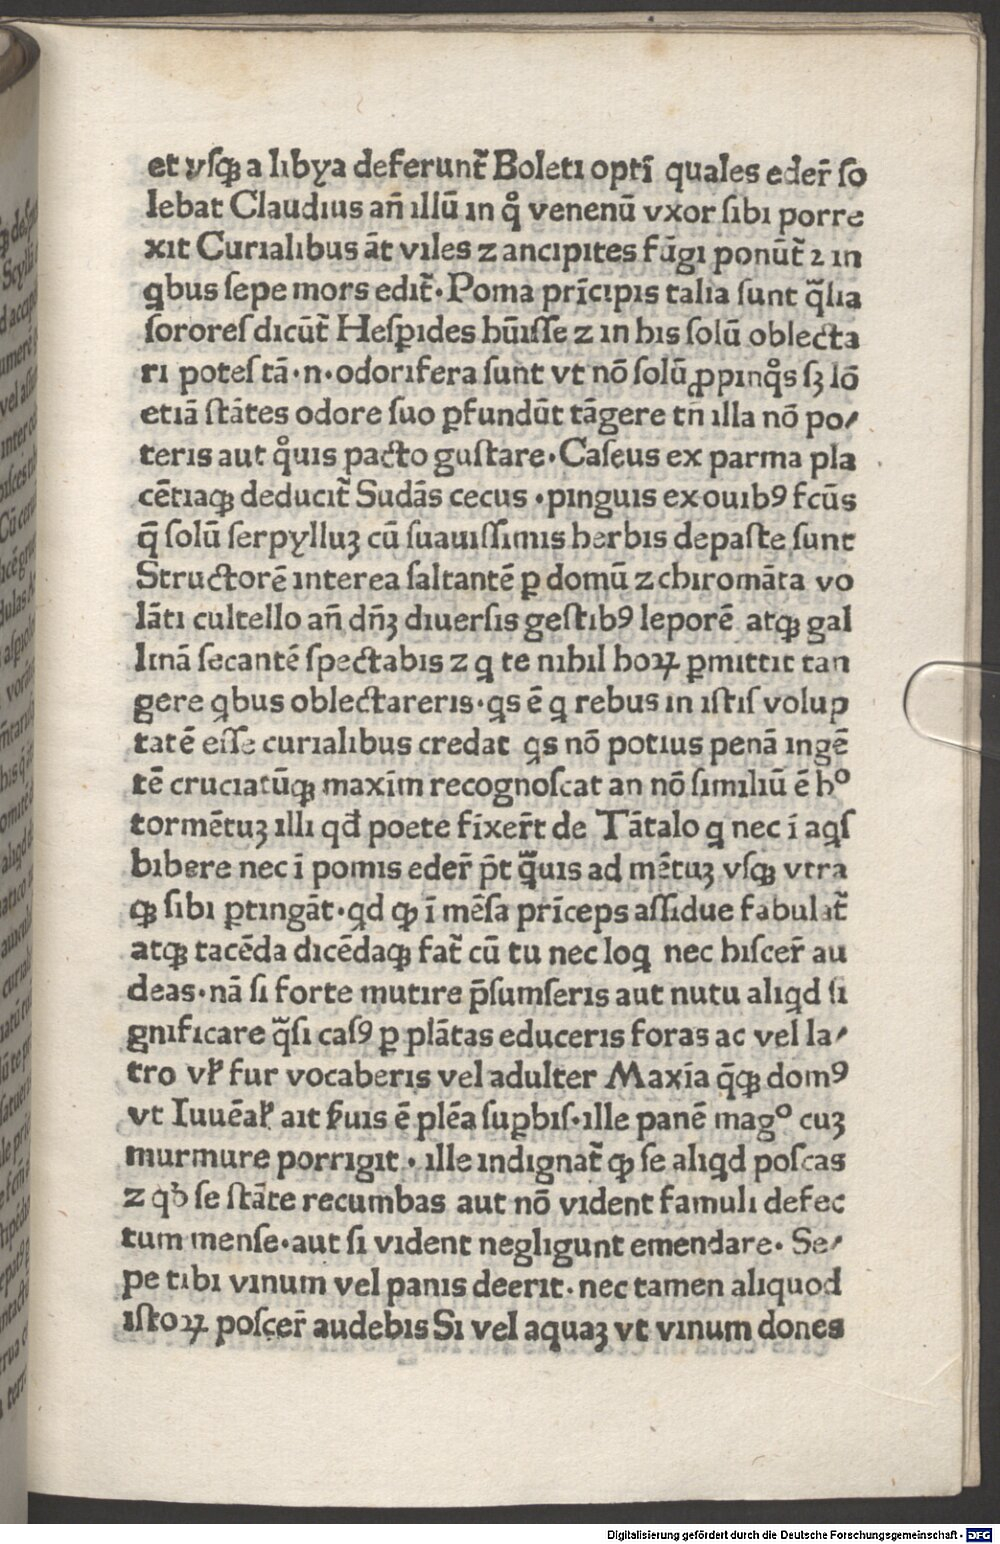 et vſqꝫ a libya deferunt᷑ Boleti opti᷑ quales eder᷑ ſo
lebat Claudius an̄ illū in qͦ venenū vxor ſibi porre
xit Curialibus āt viles ⁊ ancipites fūgi ponūt᷑ ⁊ in
qbus ſepe mors edit᷑. Poma prīcipis talia ſunt q̄lia
ſorores dicūt᷑ Heſꝑides hūiſſe ⁊ in his ſolū oblecta
ri poteſ tā.n.odorifera ſunt vt nō ſolū ꝓpinqͦs ſꝫ lō
etiā ſtātes odore ſuo ꝑfundūt tāgere tn̄ illa nō po⸗
teris aut qͦuis pacto guſtare. Caſeus ex parma pla
cētiaqꝫ deducit᷑ Sudās cecus .pinguis ex ouibꝰ fcūs
q̄ ſolū ſerpylluꝫ cū ſuauiſſimis herbis depaſte ſunt
Structorē interea ſaltantē ꝑ domū ⁊ chiromāta vo
lāti cultello an̄ dn̄ꝫ diuerſis geſtibꝰ leporē atqꝫ gal
linā ſecantē ſpectabis ⁊ q te nibil hoꝝ ꝑmittit tan
gere qbus oblectareris.qs ē q rebus in iſtiſ volup
tatē eſſe curialibus credat qs nō potius penā ingē
tē cruciatūqꝫ maxīm recognoſcat an nō ſimiliū ē hͦ
tormētuꝫ illi qd̄ poete fīxer᷑t de Tātalo q nec ī aqſ
bibere nec ī pomis eder᷑ pt̄ q̄uis ad mētuꝫ vſqꝫ vtra
qꝫ ſibi ꝑtingāt.qd qꝫ ī mēſa prīceps aſſidue fabulat᷑
atqꝫ tacēda dicēdaqꝫ fat᷑ cū tu nec loq nec hiſcer᷑ au
deas.nā ſi forte mutire p̄ſumſeris aut nutu aliqd ſi
gnificare q̄ſi caſꝰ ꝑ plātas educeris foras ac vel la⸗
tro vł fur vocaberis vel adulter Maxīa q̄qꝫ domꝰ
vt Iuuēał ait ẜuis ē plēa ſuꝑbiſ.ille panē magͦ cuꝫ
murmure porrigit . ille indignat᷑ qꝫ ſe aliqd poſcas
⁊ qb̄ ſe ſtāte recumbas aut nō vident famuli defec
tum menſe.aut ſi vident negligunt emendare. Se⸗
pe tibi vinum vel panis deerit.nec tamen aliquod
iſtoꝝ poſcer᷑ audebis Si vel aquaꝫ vt vinum dones
Digitalisierung gefördert durch die Deutsche Forschungsgemeinschaft - DFG